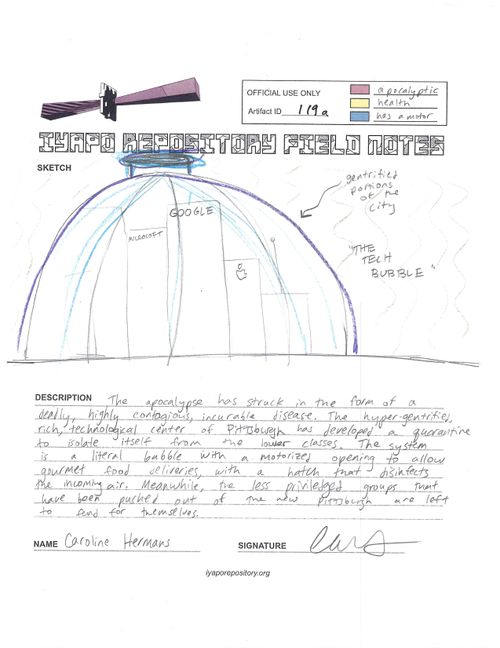 OFFICIAL USE ONLY
Artifact ID 119a
apocalyptic
health
has a motor
IYAPO REPOSITORY FIELD NOTES
SKETCH
gentrified
portions
of the
city
GOOGLE
MICROSOFT
"THE
TECH
BUBBLE"
DESCRIPTION The apocalypse has struck in the form of a
deadly, highly contagious, incurable disease. The hyper-gentrified,
rich, technological center of Pittsburgh has developed a quarantine
to isolate itself from the lower classes. The system
is a literal bubble with a motorized opening to allow
gourmet food deliveries, with a hatch that disinfects
the incoming air. Meanwhile, the less priviledged groups that
have been pushed out of the new Pittsburgh are left
to fend for themselves.
NAME Caroline Hermans SIGNATURE
iyaporepository.org